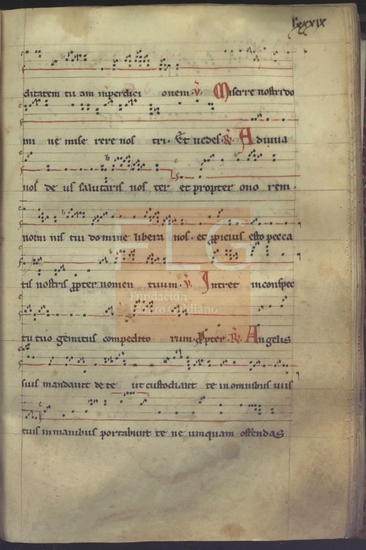 lxxxix
ditatem tu am inperdici onem. V. Miserre nostri do
mi ne mise rere nos tri. Et nedes. R. Adiuua
nos de us salutaris nos ter et propter ono rem
nomi nis tui domine libera nos. et propicius esto pecca
tis nostris propter nomen tuum. V. Intret inconspec
tu tuo gemitus compedito rum. Propter. R. Angelis
suis mandauit de te ut custodiant te inomnibus uiis
tuis inmanibus portabunt te ne umquam offendas
FLG
Fundación